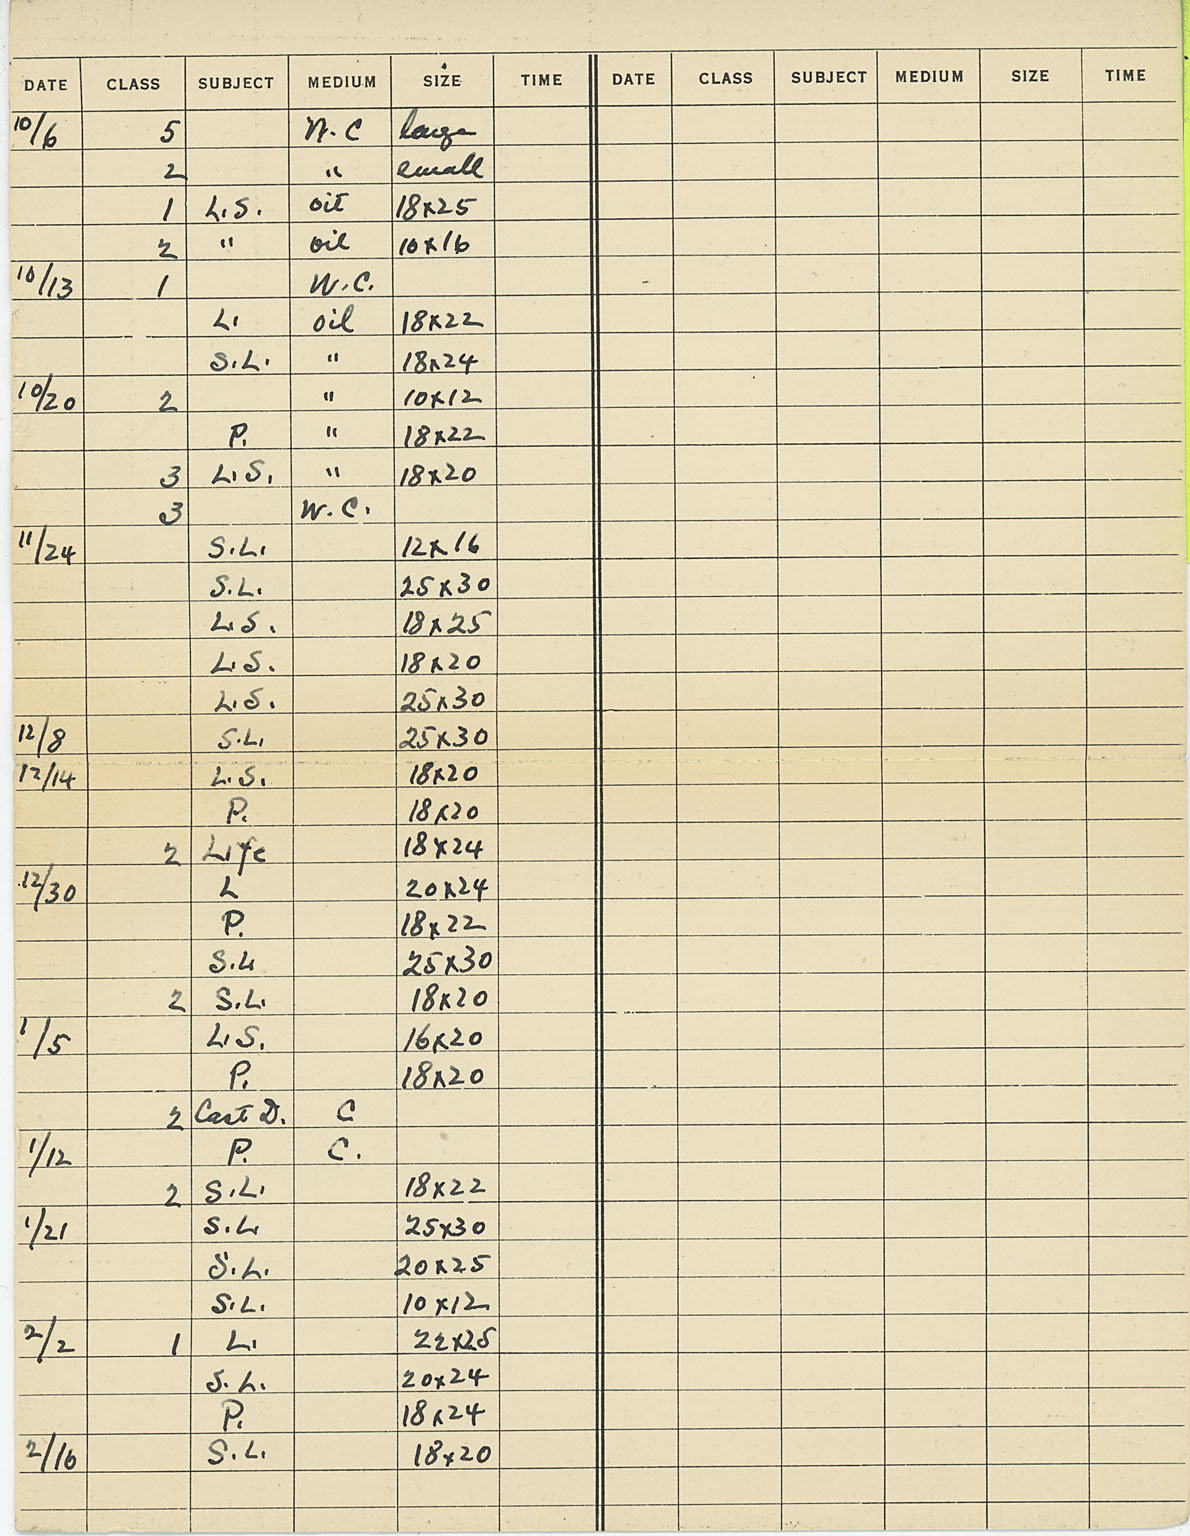 DATE CLASS SUBJECT MEDIUM SIZE TIME DATE CLASS SUBJECT MEDIUM SIZE TIME
10/6 5 W.C large
2 " small
1 L.S. oil 18x25
2 " oil 10x16
10/13 1 W.C.
L. oil 18x22
S.L. " 18x24
10/20 2 " 10x12
P. " 18x22
3 L.S. " 18x20
3 W.C.
11/24 S.L. 12x16
S.L. 25x30
L.S. 18x25
L.S. 18x20
L.S. 25x30
12/8 S.L. 25x30
12/14 L.S. 18x20
P. 18x20
2 Life 18x24
12/30 L 20x24
P. 18x22
S.L 25x30
2 S.L. 18x20
1/5 L.S. 16x20
P. 18x20
2 Cast D. C
1/12 P. C.
2 S.L. 18x22
1/21 S.L. 25x30
S.L. 20x25
S.L. 10x12
2/2 1 L. 22x25
S.L. 20x24
P. 18x24
2/16 S.L. 18x20